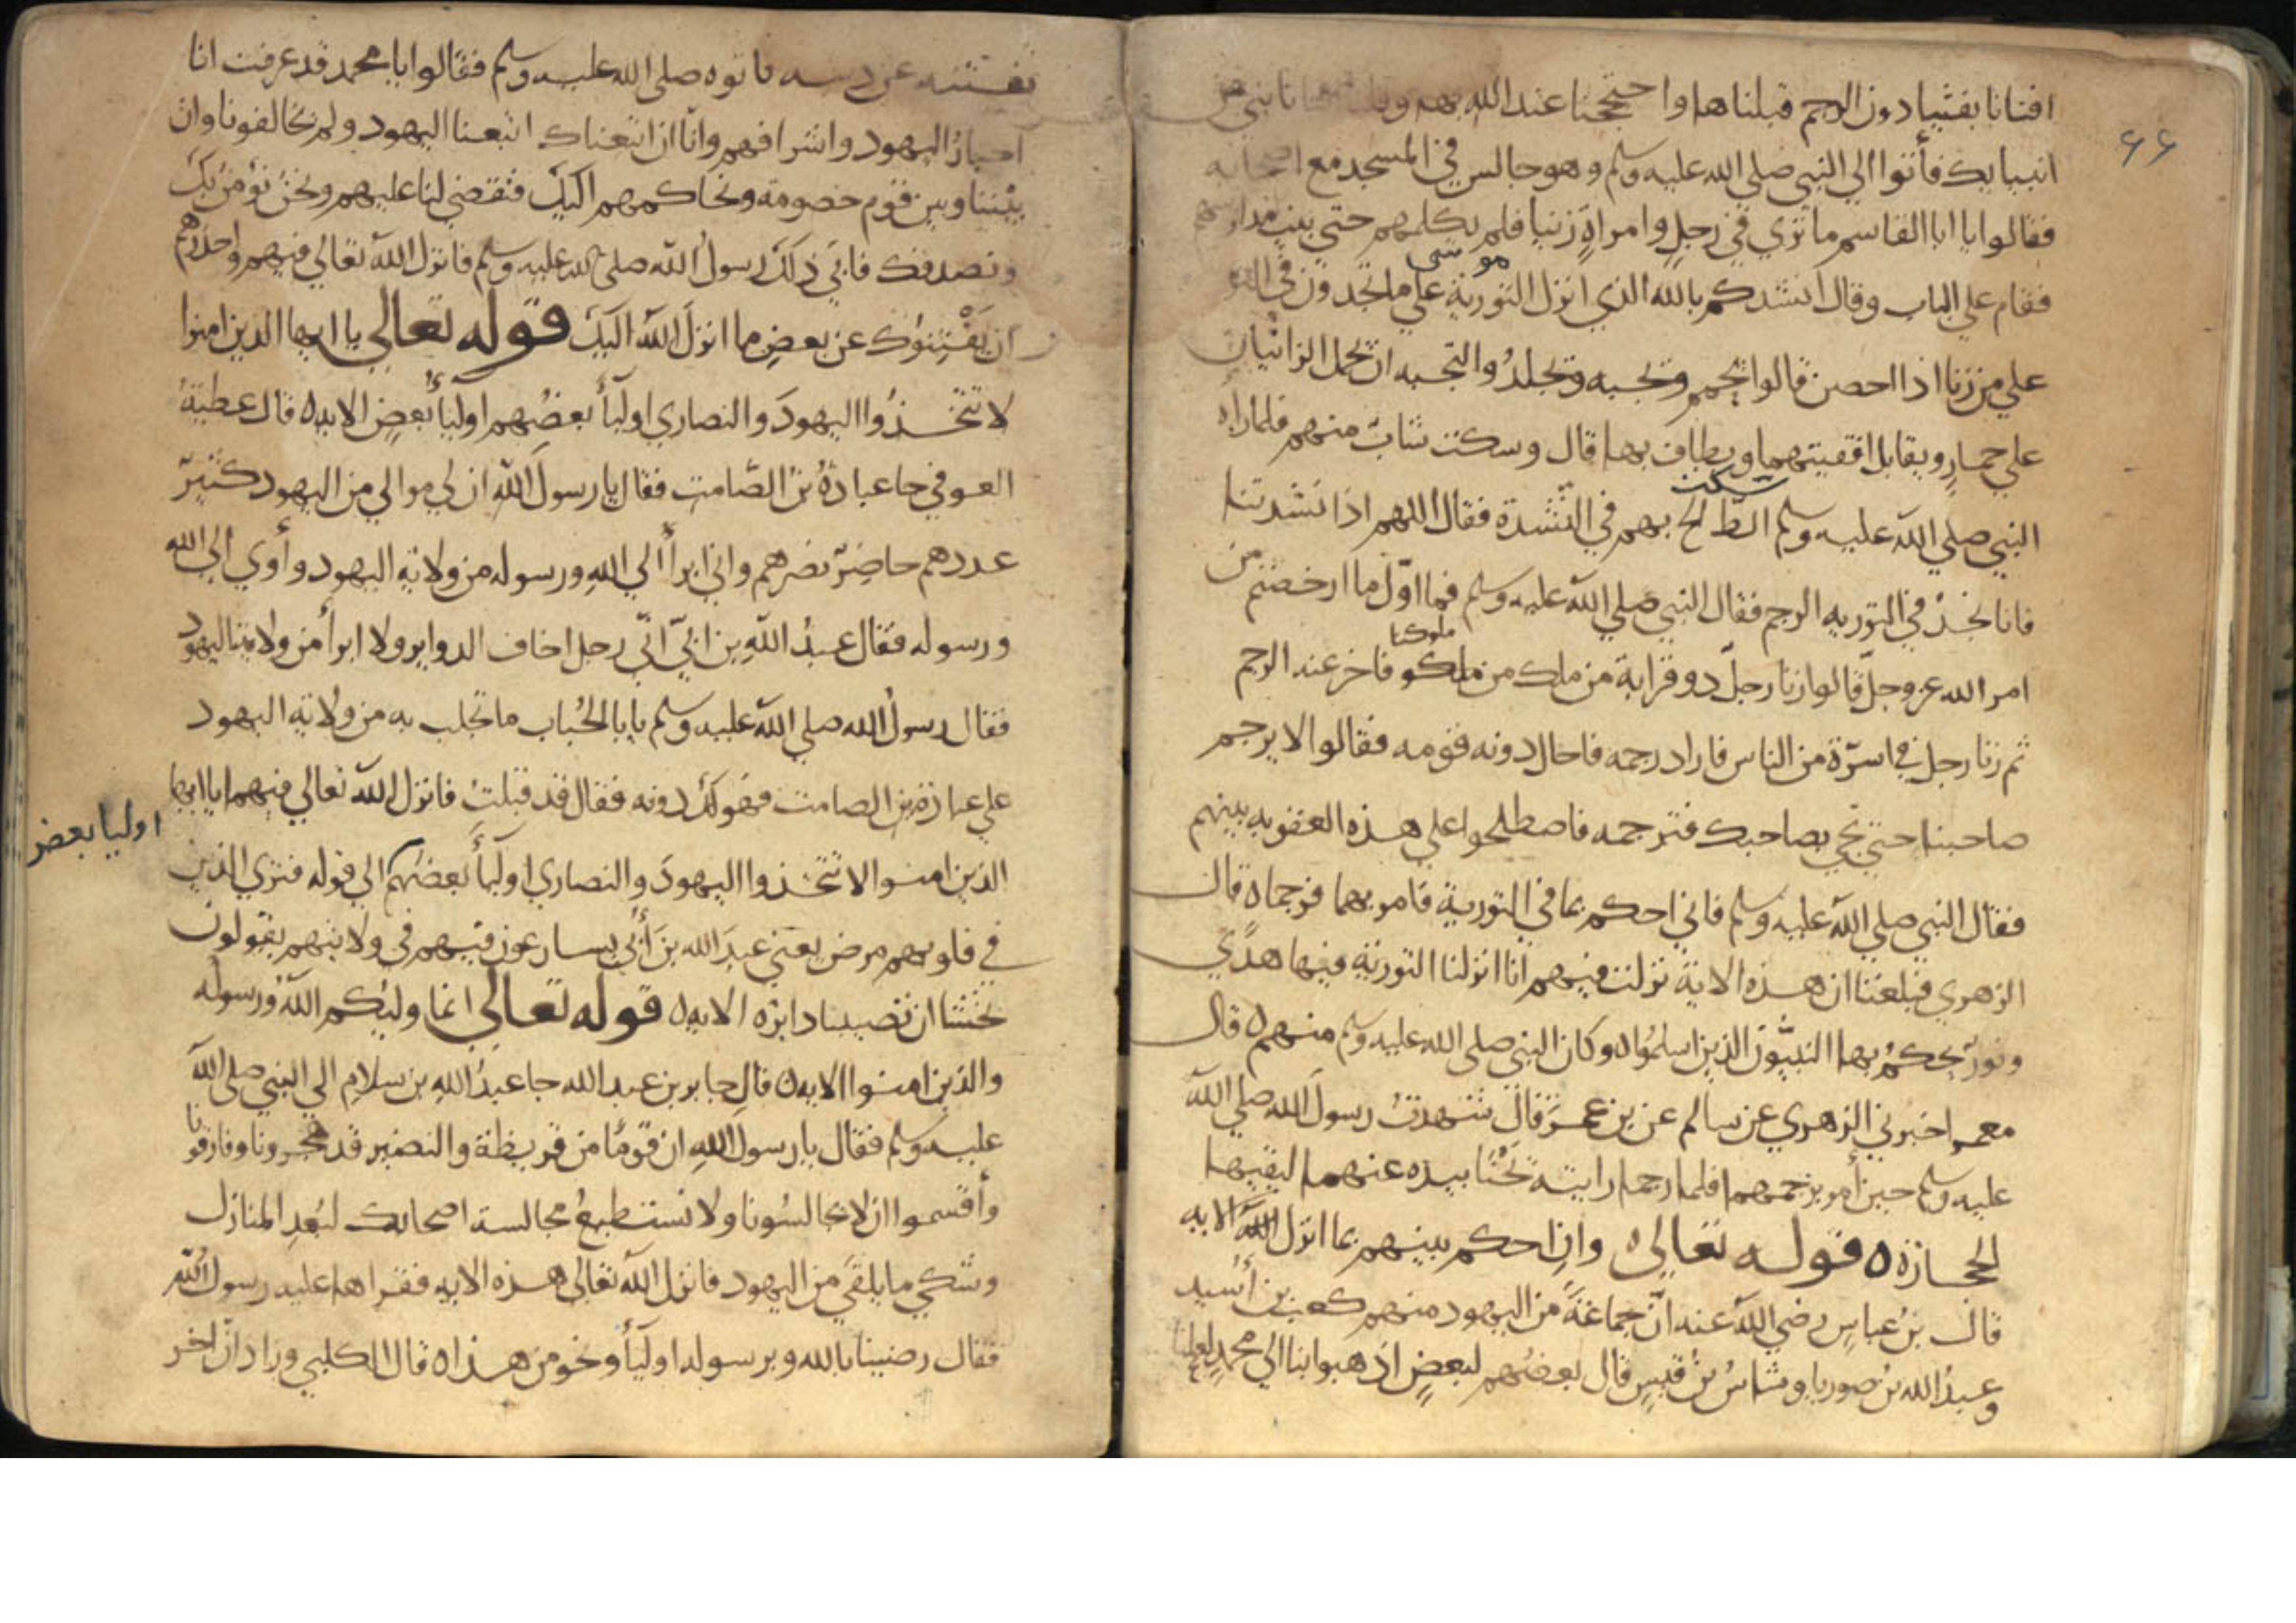 ٤٤
افتانا بفتيا دون الرجم قبلناها واحتججنا عند الله بها وقلنا فتيا نبي من
انبيايك فأتوا الي النبي صلي الله عليه وسلم وهو جالس في المسجد مع اصحابه
فقالوا يا ابا القاسم ما تري في رجل وامراة زنيا فلم يكلمهم حتي بيت مدراسهم
فقام علي الباب وقال انشدكم بالله الذي انزل التورية علي موسى ما تجدون في التو
علي من زنا اذا احصن قالوا يحمم ويجبه ويجلد والتجبه ان يحمل الزانيان
علي حمار ويقابل اقفيتهما ويطاف بهما قال وسكت شاب منهم فلما راه
النبي صلي الله عليه وسلم سكت الظ الح بهم في النشدة فقال اللهم اذ انشدتنا
فانا نجد في التوريه الرجم فقال النبي صلي الله عليه وسلم فما اول ما ارخصتم من
امر الله عز وجل قالوا زنا رجل ذو قرابة من ملك من ملوكنا فاخر عنه الرجم
ثم زنا رجل في اسرة من الناس فاراد رجمه فاحال دونه قومه فقالوا لا يرجم
صاحبنا حتي تجي بصاحبك فترجمه فاصطلحوا علي هذه العقوبه بينهم
فقال النبي صلي الله عليه وسلم فاني احكم بما في التورية فامر بهما فرجما ه قال
الزهري فبلغنا ان هذه الاية نزلت فيهم انا انزلنا التورية فيها هدي
ونور يحكم بها النبيون الذين اسلموا ه وكان النبي صلي الله عليه وسلم منهم ه قال
معمر اخبرني الزهري عن سالم عن بن عمر قال شهدت رسول الله صلي الله
عليه وسلم حين أمر برجمهما فلما رجما رايته يحنا بيده عنها ليقيها
الحجارة ه قوله تعالي ه وان احكم بينهم بما انزل الله الايه
قال بن عباس رضي الله عنه ان جماعة من اليهود منهم كعب بن أسيد
وعبد الله بن صوريا وشاس بن قيس قال بعضهم لبعض اذهبوا بنا الي محمد لعلنا
نفتنه عن دينه فاتوه صلي الله عليه وسلم فقالوا يا محمد قد عرفت انا
احبار اليهود واشرافهم وانا ان اتبعناك اتبعنا اليهود ولم يخالفونا وان
بيننا وبين قوم خصومة ونحاكمهم اليك فتقضي لنا عليهم ونحن نؤمن بك
ونصدقك فابي ذلك رسول الله صلي الله عليه وسلم فانزل الله تعالي فيهم واحذرهم
ان يفتنوك عن بعض ما انزل الله اليك قوله تعالي يا ايها الذين امنوا
لا تتخذوا اليهود والنصاري اوليأ بعضهم اوليأ بعض الايه ه قال عطية
العوفي جا عبادة بن الصامت فقال يا رسول الله ان لي موالي من اليهود كثير
عددهم حاضر نصرهم واني ابرأ الي الله ورسوله من ولاية اليهود وأوي الي الله
ورسوله فقال عبد الله بن ابي اني رجل اخاف الدواير ولا ابرأ من ولاية اليهود
فقال رسول الله صلي الله عليه وسلم يابا الحباب ما تجلب به من ولاية اليهود
علي عبادة بن الصامت فهو لك دونه فقال قد قبلت فانزل الله تعالي فيهما يا ايها
الذين امنوا لا تتخذوا اليهود والنصاري اوليأ بعضهم الي قوله فتري الذين
اوليا بعض
في قلوبهم مرض يعني عبد الله بن أبي يسارعون فيهم في ولايتهم يقولون
نخشا ان تصيبنا دايرة الايه ه قوله تعالي انما وليكم الله ورسوله
والذين امنوا الايه ه قال جابر بن عبد الله جا عبد الله بن سلام الي النبي صلي الله
عليه وسلم فقال يا رسول الله ان قوما من قريظة والنضير قد هجرونا وفارقونا
وأقسموا ان لا يجالسونا ولا نستطيع مجالسة اصحابك لبعد المنازل
وشكي ما يلقي من اليهود فانزل الله تعالي هذه الايه فقراها عليه رسول الله
فقال رضينا بالله وبرسوله اوليأ ونحو من هذا ه قال الكلبي وزاد ان اخر